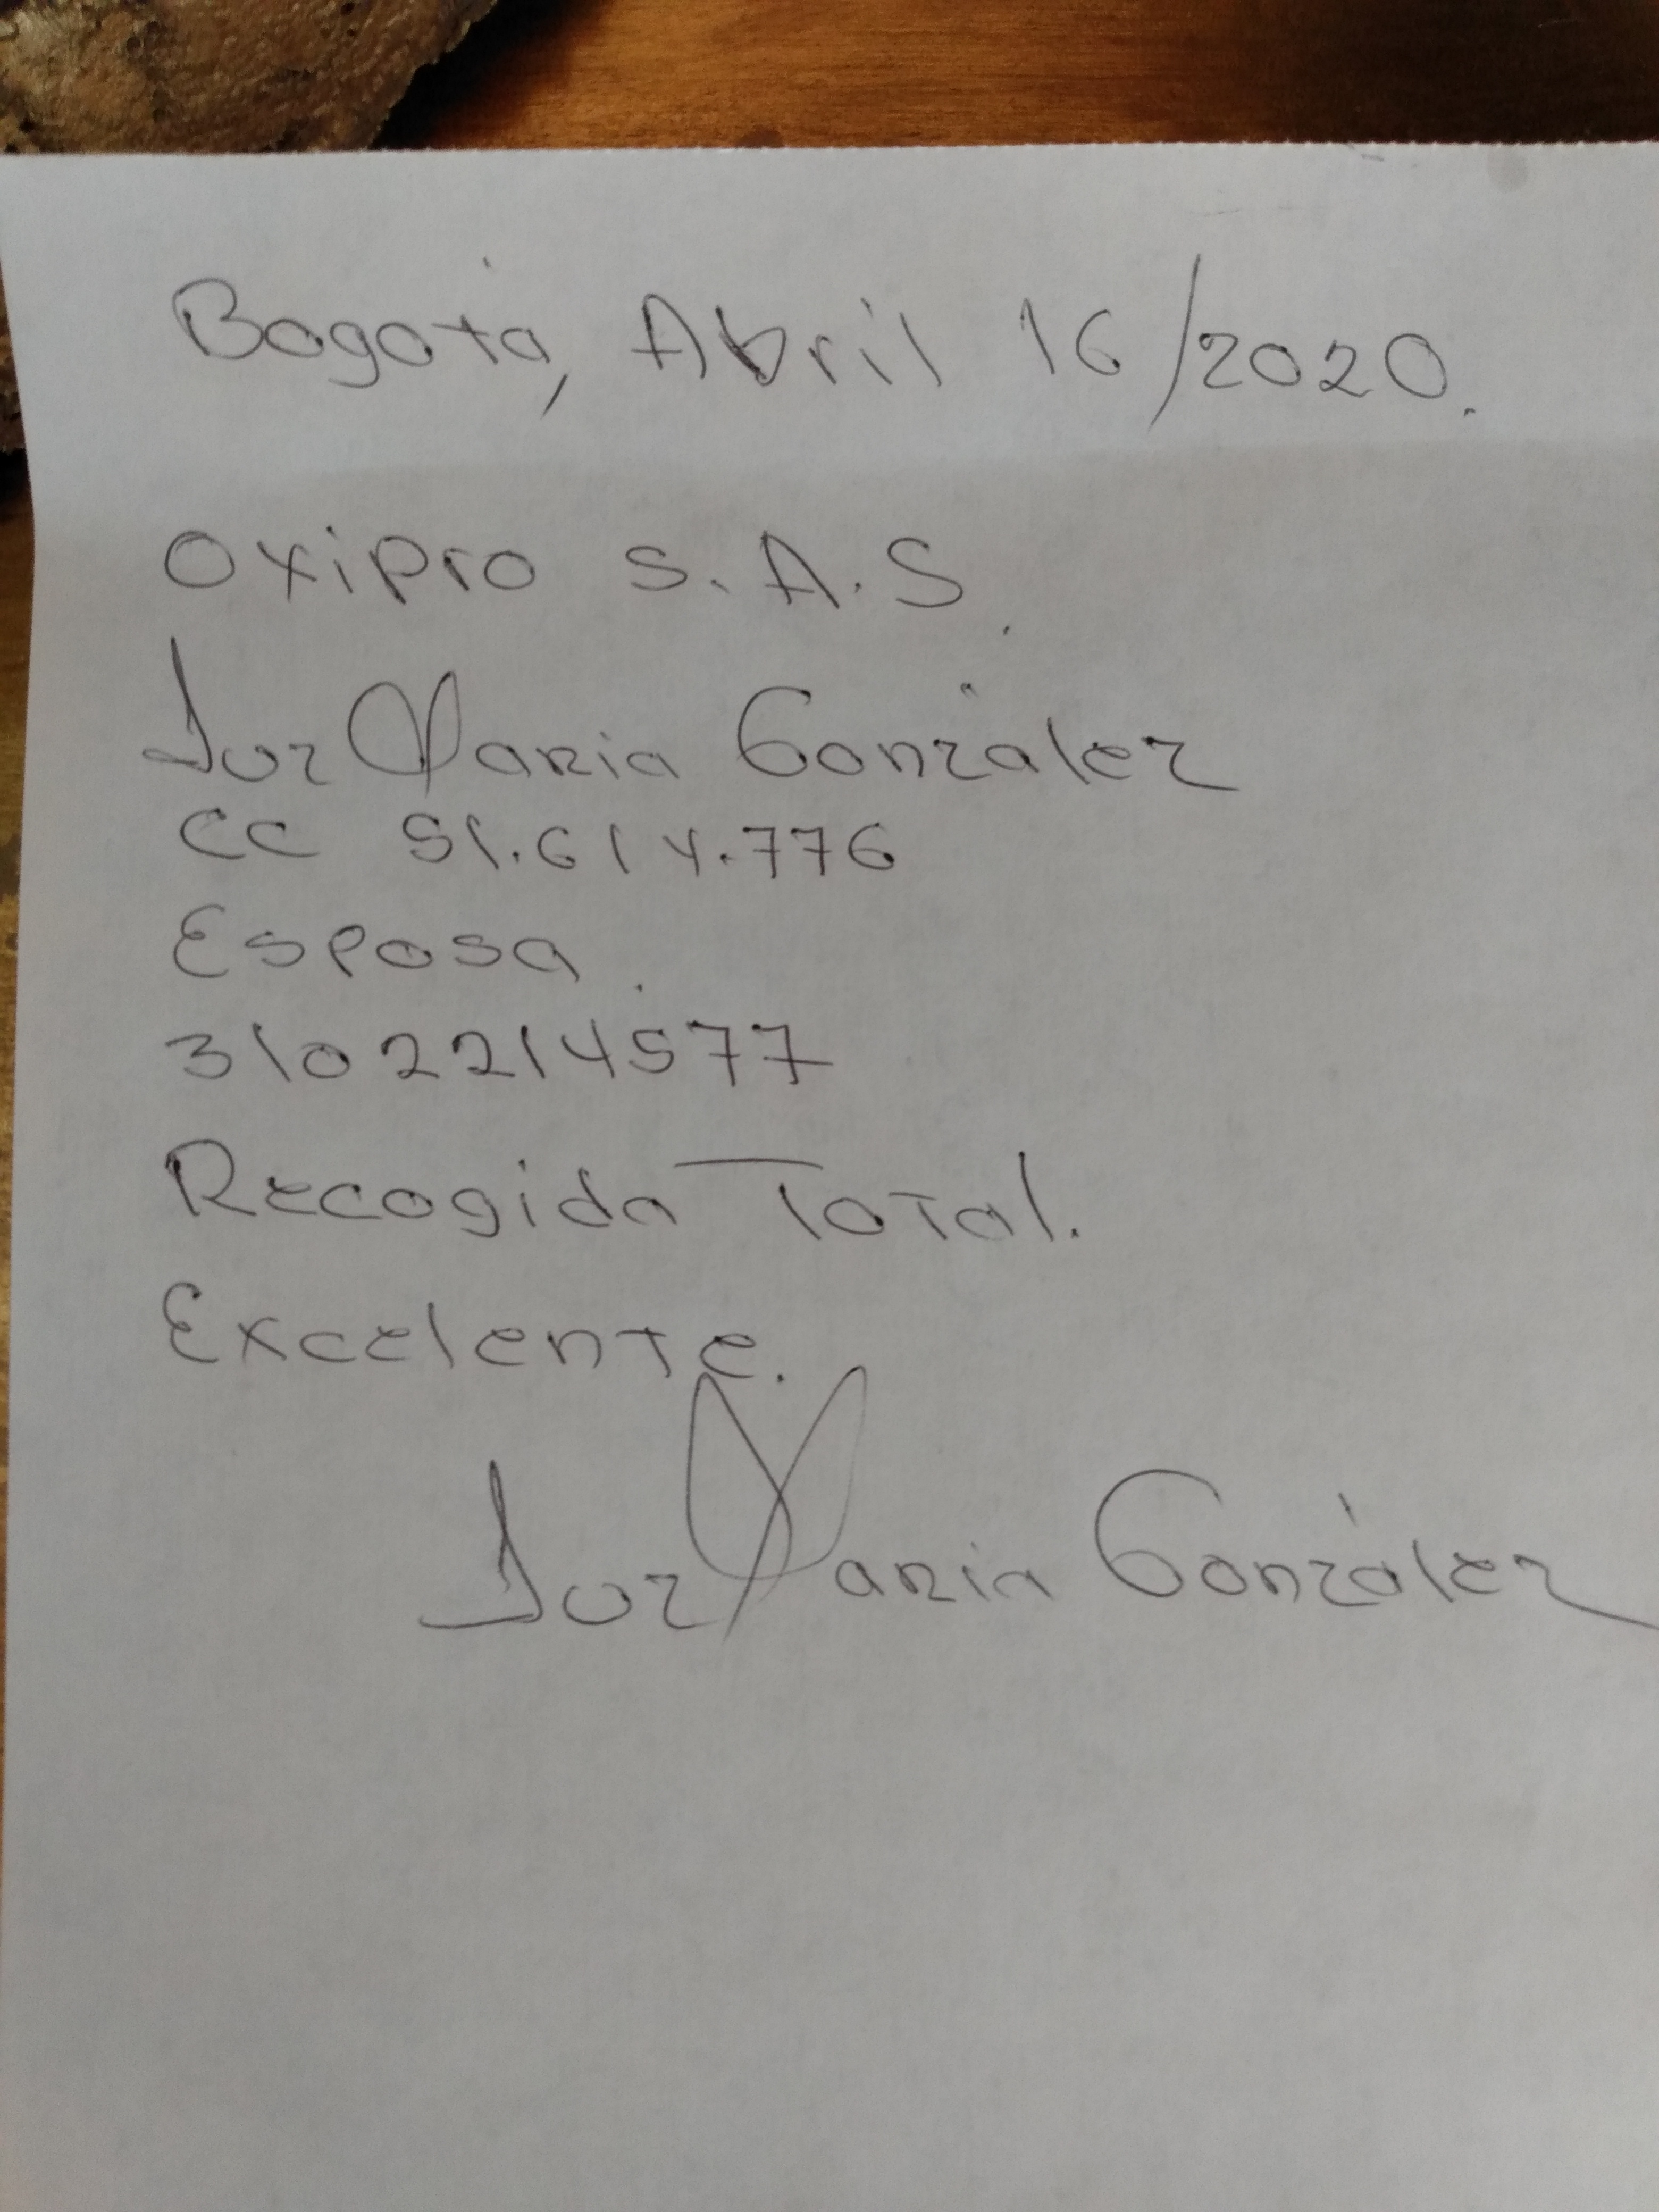 Bogotá, Abril 16/2020.
Oxipro S.A.S.
Luz Maria González
CC 51.614.776
Esposa.
3102214577
Recogida Total.
Excelente.
Luz Maria González